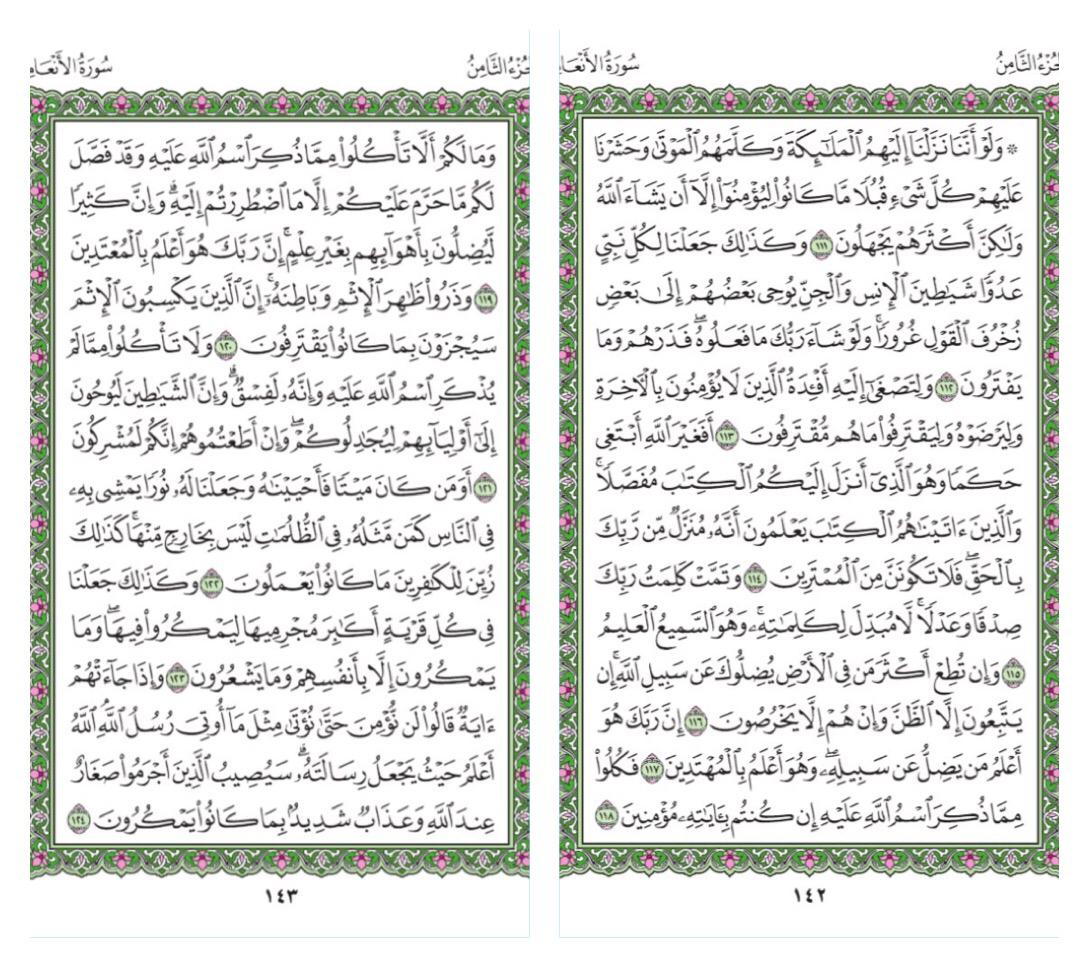 جُزْءُ الثَّامِنُ
سُورَةُ الأَنْعَا
۞ وَلَوْ أَنَّنَا نَزَّلْنَآ إِلَيْهِمُ ٱلْمَلَـٰٓئِكَةَ وَكَلَّمَهُمُ ٱلْمَوْتَىٰ وَحَشَرْنَا
عَلَيْهِمْ كُلَّ شَىْءٍ قُبُلًا مَّا كَانُوا۟ لِيُؤْمِنُوٓا۟ إِلَّآ أَن يَشَآءَ ٱللَّهُ
وَلَـٰكِنَّ أَكْثَرَهُمْ يَجْهَلُونَ ١١١ وَكَذَٰلِكَ جَعَلْنَا لِكُلِّ نَبِىٍّ
عَدُوًّا شَيَـٰطِينَ ٱلْإِنسِ وَٱلْجِنِّ يُوحِى بَعْضُهُمْ إِلَىٰ بَعْضٍ
زُخْرُفَ ٱلْقَوْلِ غُرُورًا ۚ وَلَوْ شَآءَ رَبُّكَ مَا فَعَلُوهُ ۖ فَذَرْهُمْ وَمَا
يَفْتَرُونَ ١١٢ وَلِتَصْغَىٰٓ إِلَيْهِ أَفْـِٔدَةُ ٱلَّذِينَ لَا يُؤْمِنُونَ بِٱلْـَٔاخِرَةِ
وَلِيَرْضَوْهُ وَلِيَقْتَرِفُوا۟ مَا هُم مُّقْتَرِفُونَ ١١٣ أَفَغَيْرَ ٱللَّهِ أَبْتَغِى
حَكَمًا وَهُوَ ٱلَّذِىٓ أَنزَلَ إِلَيْكُمُ ٱلْكِتَـٰبَ مُفَصَّلًا ۚ
وَٱلَّذِينَ ءَاتَيْنَـٰهُمُ ٱلْكِتَـٰبَ يَعْلَمُونَ أَنَّهُۥ مُنَزَّلٌ مِّن رَّبِّكَ
بِٱلْحَقِّ ۖ فَلَا تَكُونَنَّ مِنَ ٱلْمُمْتَرِينَ ١١٤ وَتَمَّتْ كَلِمَتُ رَبِّكَ
صِدْقًا وَعَدْلًا ۚ لَّا مُبَدِّلَ لِكَلِمَـٰتِهِۦ ۚ وَهُوَ ٱلسَّمِيعُ ٱلْعَلِيمُ
١١٥ وَإِن تُطِعْ أَكْثَرَ مَن فِى ٱلْأَرْضِ يُضِلُّوكَ عَن سَبِيلِ ٱللَّهِ ۚ إِن
يَتَّبِعُونَ إِلَّا ٱلظَّنَّ وَإِنْ هُمْ إِلَّا يَخْرُصُونَ ١١٦ إِنَّ رَبَّكَ هُوَ
أَعْلَمُ مَن يَضِلُّ عَن سَبِيلِهِۦ ۖ وَهُوَ أَعْلَمُ بِٱلْمُهْتَدِينَ ١١٧ فَكُلُوا۟
مِمَّا ذُكِرَ ٱسْمُ ٱللَّهِ عَلَيْهِ إِن كُنتُم بِـَٔايَـٰتِهِۦ مُؤْمِنِينَ ١١٨
١٤٢
جُزْءُ الثَّامِنُ
سُورَةُ الأَنْعَا
وَمَا لَكُمْ أَلَّا تَأْكُلُوا۟ مِمَّا ذُكِرَ ٱسْمُ ٱللَّهِ عَلَيْهِ وَقَدْ فَصَّلَ
لَكُم مَّا حَرَّمَ عَلَيْكُمْ إِلَّا مَا ٱضْطُرِرْتُمْ إِلَيْهِ ۗ وَإِنَّ كَثِيرًا
لَّيُضِلُّونَ بِأَهْوَآئِهِم بِغَيْرِ عِلْمٍ ۗ إِنَّ رَبَّكَ هُوَ أَعْلَمُ بِٱلْمُعْتَدِينَ
١١٩ وَذَرُوا۟ ظَـٰهِرَ ٱلْإِثْمِ وَبَاطِنَهُۥٓ ۚ إِنَّ ٱلَّذِينَ يَكْسِبُونَ ٱلْإِثْمَ
سَيُجْزَوْنَ بِمَا كَانُوا۟ يَقْتَرِفُونَ ١٢٠ وَلَا تَأْكُلُوا۟ مِمَّا لَمْ
يُذْكَرِ ٱسْمُ ٱللَّهِ عَلَيْهِ وَإِنَّهُۥ لَفِسْقٌ ۗ وَإِنَّ ٱلشَّيَـٰطِينَ لَيُوحُونَ
إِلَىٰٓ أَوْلِيَآئِهِمْ لِيُجَـٰدِلُوكُمْ ۖ وَإِنْ أَطَعْتُمُوهُمْ إِنَّكُمْ لَمُشْرِكُونَ
١٢١ أَوَمَن كَانَ مَيْتًا فَأَحْيَيْنَـٰهُ وَجَعَلْنَا لَهُۥ نُورًا يَمْشِى بِهِۦ
فِى ٱلنَّاسِ كَمَن مَّثَلُهُۥ فِى ٱلظُّلُمَـٰتِ لَيْسَ بِخَارِجٍ مِّنْهَا ۚ كَذَٰلِكَ
زُيِّنَ لِلْكَـٰفِرِينَ مَا كَانُوا۟ يَعْمَلُونَ ١٢٢ وَكَذَٰلِكَ جَعَلْنَا
فِى كُلِّ قَرْيَةٍ أَكَـٰبِرَ مُجْرِمِيهَا لِيَمْكُرُوا۟ فِيهَا ۖ وَمَا
يَمْكُرُونَ إِلَّا بِأَنفُسِهِمْ وَمَا يَشْعُرُونَ ١٢٣ وَإِذَا جَآءَتْهُمْ
ءَايَةٌ قَالُوا۟ لَن نُّؤْمِنَ حَتَّىٰ نُؤْتَىٰ مِثْلَ مَآ أُوتِىَ رُسُلُ ٱللَّهِ ۘ ٱللَّهُ
أَعْلَمُ حَيْثُ يَجْعَلُ رِسَالَتَهُۥ ۗ سَيُصِيبُ ٱلَّذِينَ أَجْرَمُوا۟ صَغَارٌ
عِندَ ٱللَّهِ وَعَذَابٌ شَدِيدٌۢ بِمَا كَانُوا۟ يَمْكُرُونَ ١٢٤
١٤٣